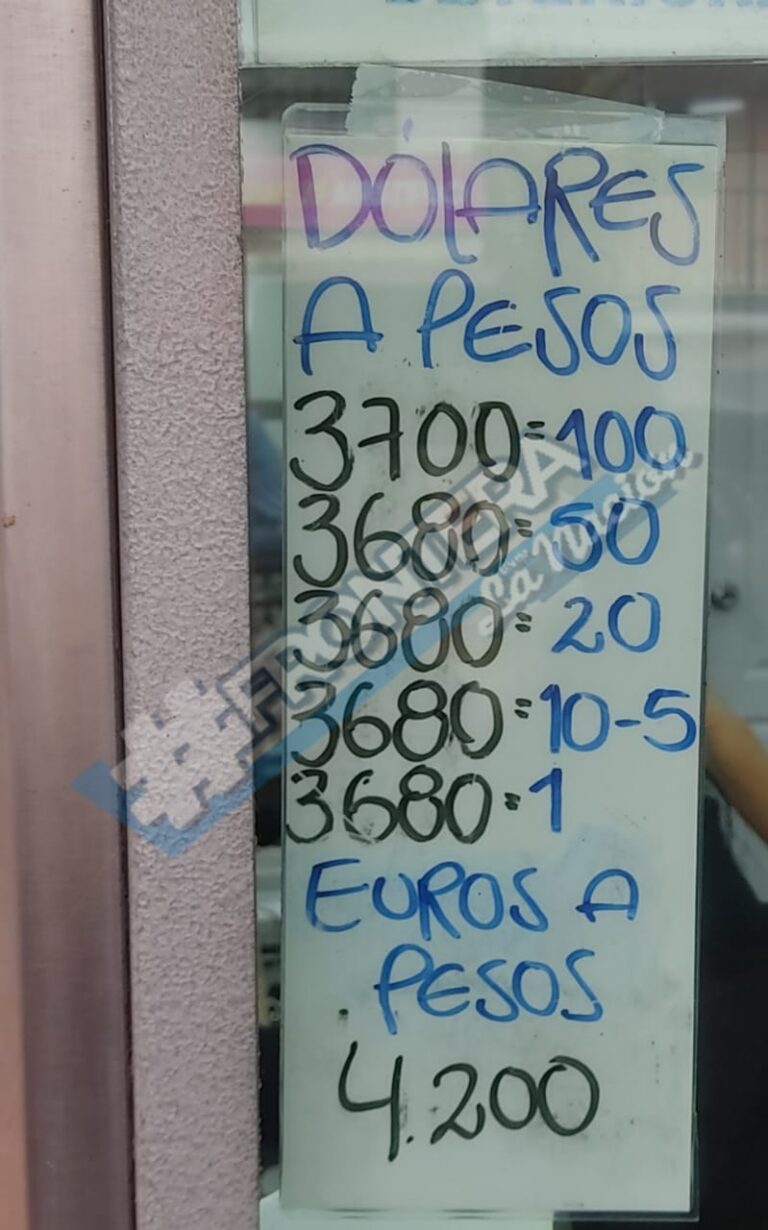 DÓLARES
A PESOS
3700=100
3680=50
3680=20
3680=10-5
3680=1
EUROS A
PESOS
4.200
#FRONTERA
La Nación